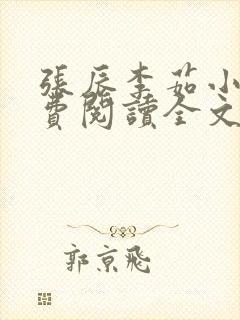 張辰李茹小
費閱讀全文
郭京飛